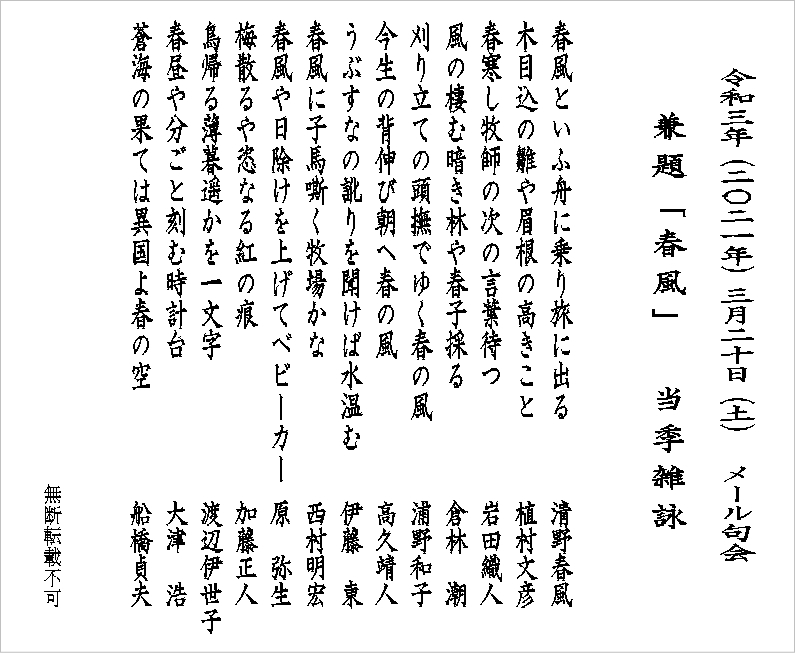 令和三年（二〇二一年）三月二十日（土） メール句会
兼題「春風」 当季雑詠
春風といふ舟に乗り旅に出る 清野春風
木目込の雛や眉根の高きこと 植村文彦
春寒し牧師の次の言葉待つ 岩田織人
風の棲む暗き林や春子採る 倉林 潮
刈り立ての頭撫でゆく春の風 浦野和子
今生の背伸び朝へ春の風 高久靖人
うぶすなの訛りを聞けば水温む 伊藤 東
春風に子馬嘶く牧場かな 西村明宏
春風や日除けを上げてベビーカー 原 弥生
梅散るや恣なる紅の痕 加藤正人
鳥帰る薄暮遥かを一文字 渡辺伊世子
春昼や分ごと刻む時計台 大津 浩
蒼海の果ては異国よ春の空 船橋貞夫
無断転載不可